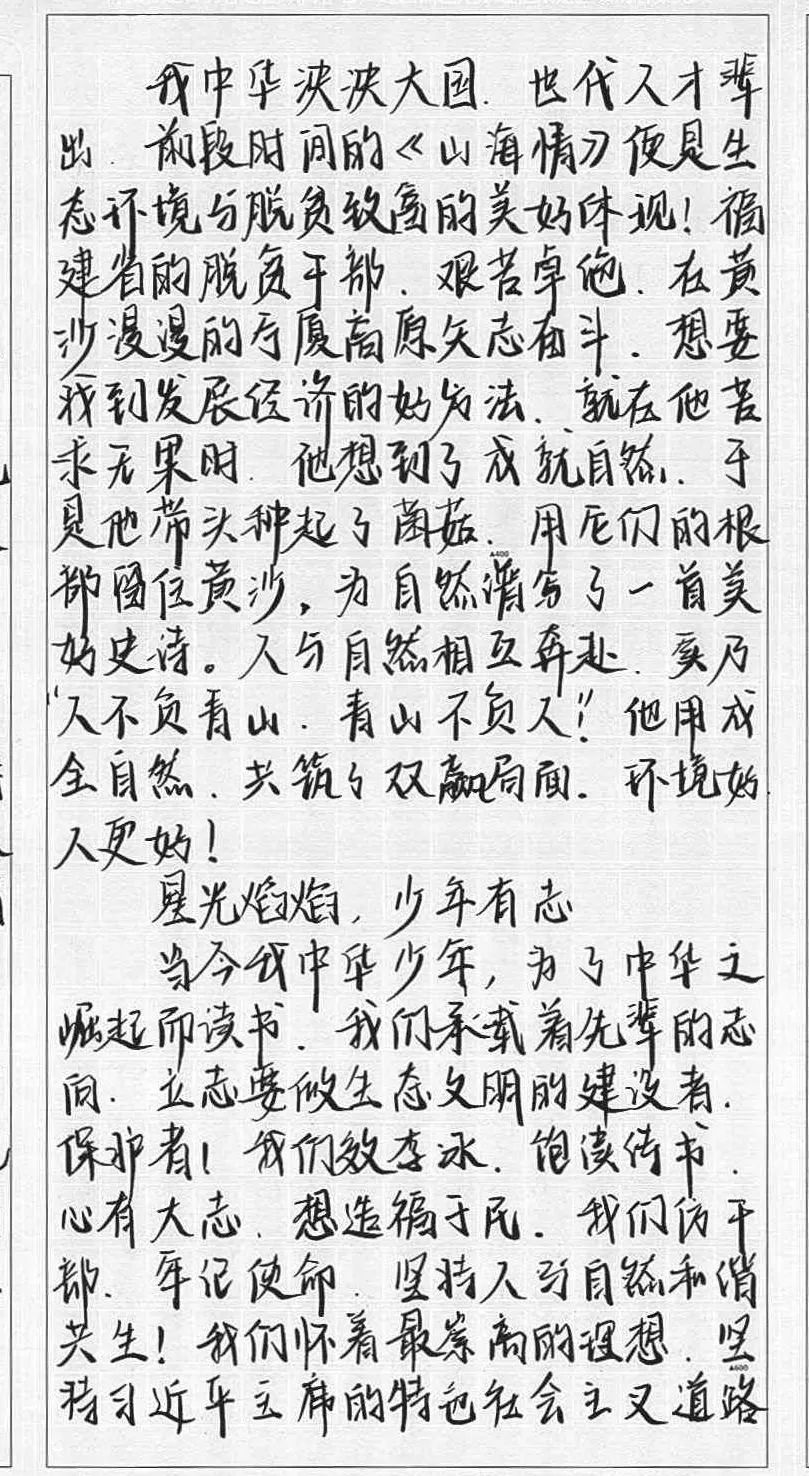 我中华泱泱大国，世代人才辈
出，前段时间的《山海情》便是生
态环境与脱贫致富的美好体现！福
建省的脱贫干部，艰苦卓绝，在黄
沙漫漫的宁厦高原矢志奋斗，想要
找到发展经济的好方法，就在他苦
求无果时，他想到了成就自然，于
是他带头种起了菌菇，用它们的根
部固住黄沙，为自然谱写了一首美
A400
好史诗。人与自然相互奔赴，实乃
“人不负青山，青山不负人”！他用成
全自然，共筑了双赢局面，环境好，
人更好！
星光焰焰，少年有志
当今我中华少年，为了中华之
崛起而读书，我们承载着先辈的志
向，立志要做生态文明的建设者，
保护者！我们效李冰，饱读诗书，
心有大志，想造福于民，我们仿干
部，牢记使命，坚持人与自然和谐
共生！我们怀着最崇高的理想，坚
A600
持习近平主席的特色社会主义道路